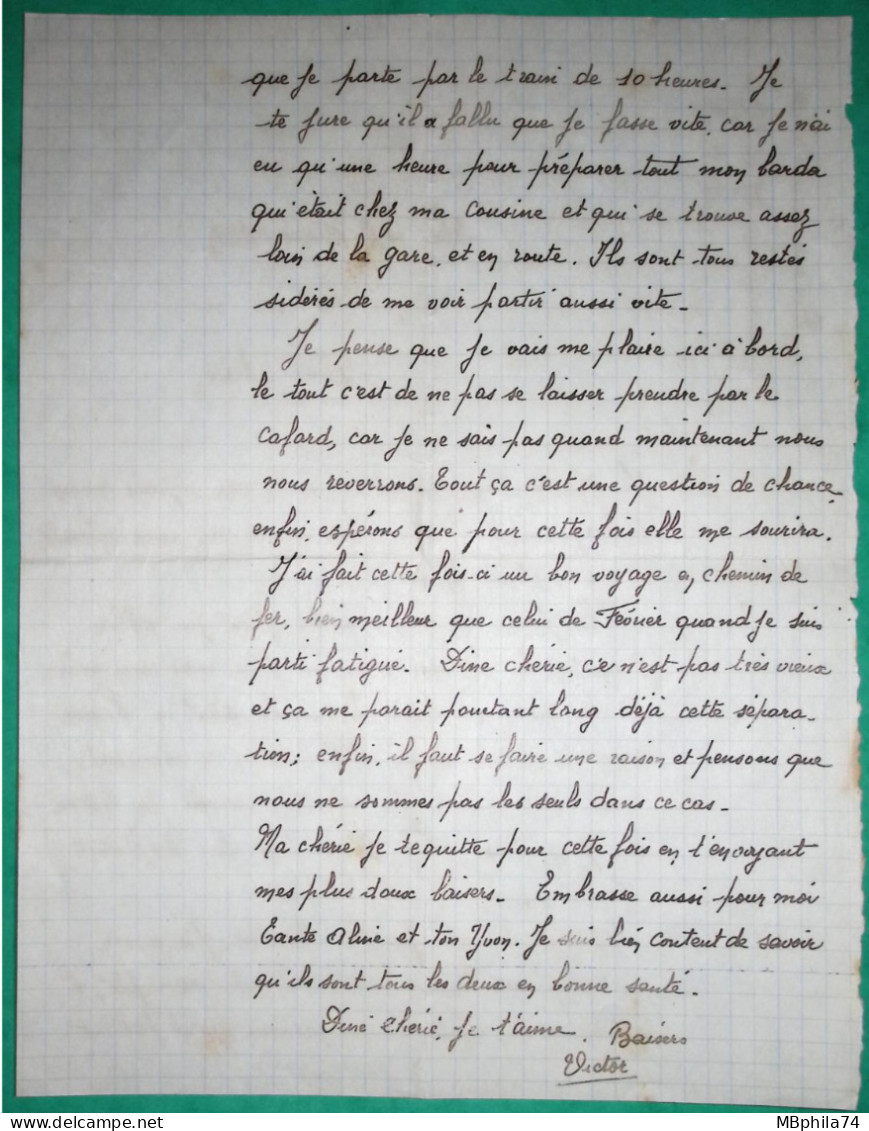 que je parte par le train de 10 heures. Je
te jure qu'il a fallu que je fasse vite, car je n'ai
eu qu'une heure pour préparer tout mon barda
qu'était chez ma cousine et qui se trouve assez
loin de la gare, et en route. Ils sont tous restés
sidérés de me voir partir aussi vite.
Je pense que je vais me plaire ici à bord,
le tout c'est de ne pas se laisser prendre par le
cafard, car je ne sais pas quand maintenant nous
nous reverrons. Tout ça c'est une question de chance,
enfin, espérons que pour cette fois elle me sourira.
J'ai fait cette fois-ci un bon voyage en chemin de
fer, bien meilleur que celui de Février quand je suis
parti fatigué. Dine chérie, ce n'est pas très vieux
et ça me parait pourtant long déjà cette sépara-
tion; enfin, il faut se faire une raison et pensons que
nous ne sommes pas les seuls dans ce cas.
Ma chérie je te quitte pour cette fois en t'envoyant
mes plus doux baisers. Embrasse aussi pour moi
Tante Aline et ton Yvon. Je suis bien content de savoir
qu'ils sont tous les deux en bonne santé.
Dine chérie, je t'aime. Baisers
Victor
MBphila74